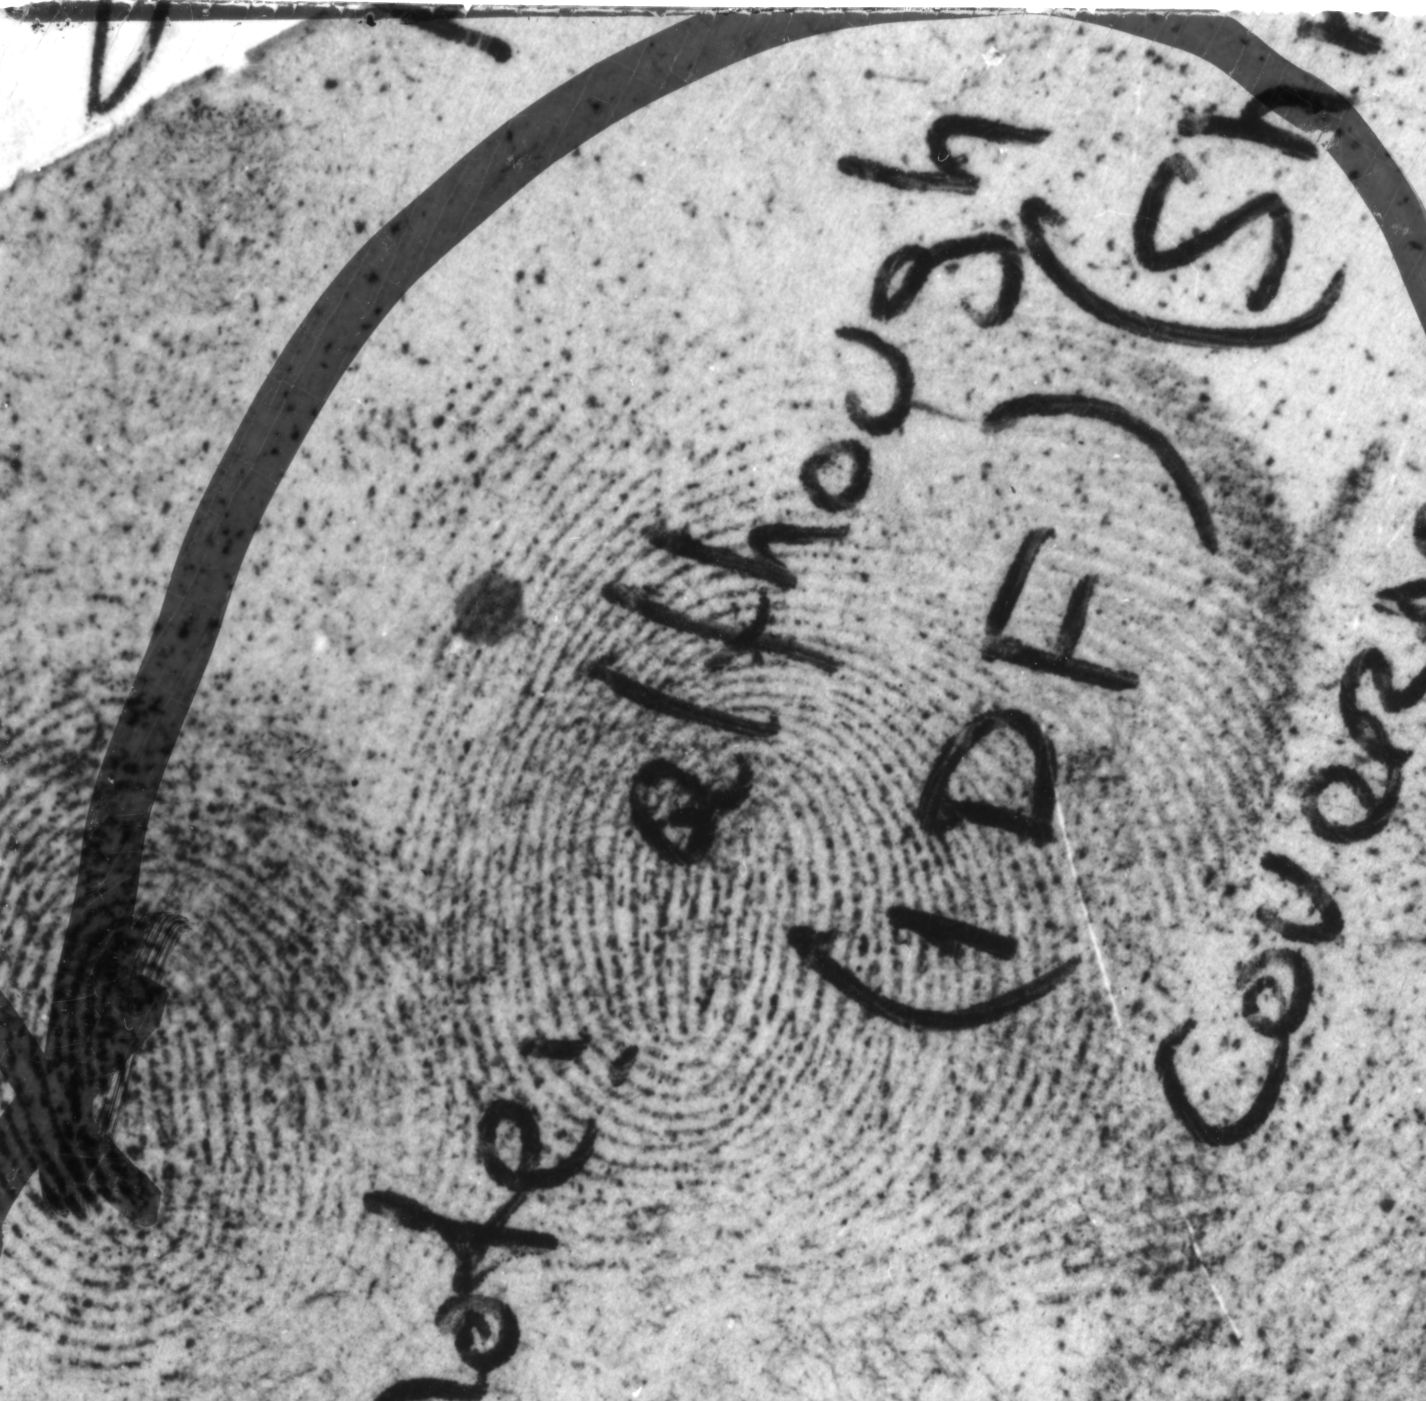 note: Although
(IDF) (Sh
covers